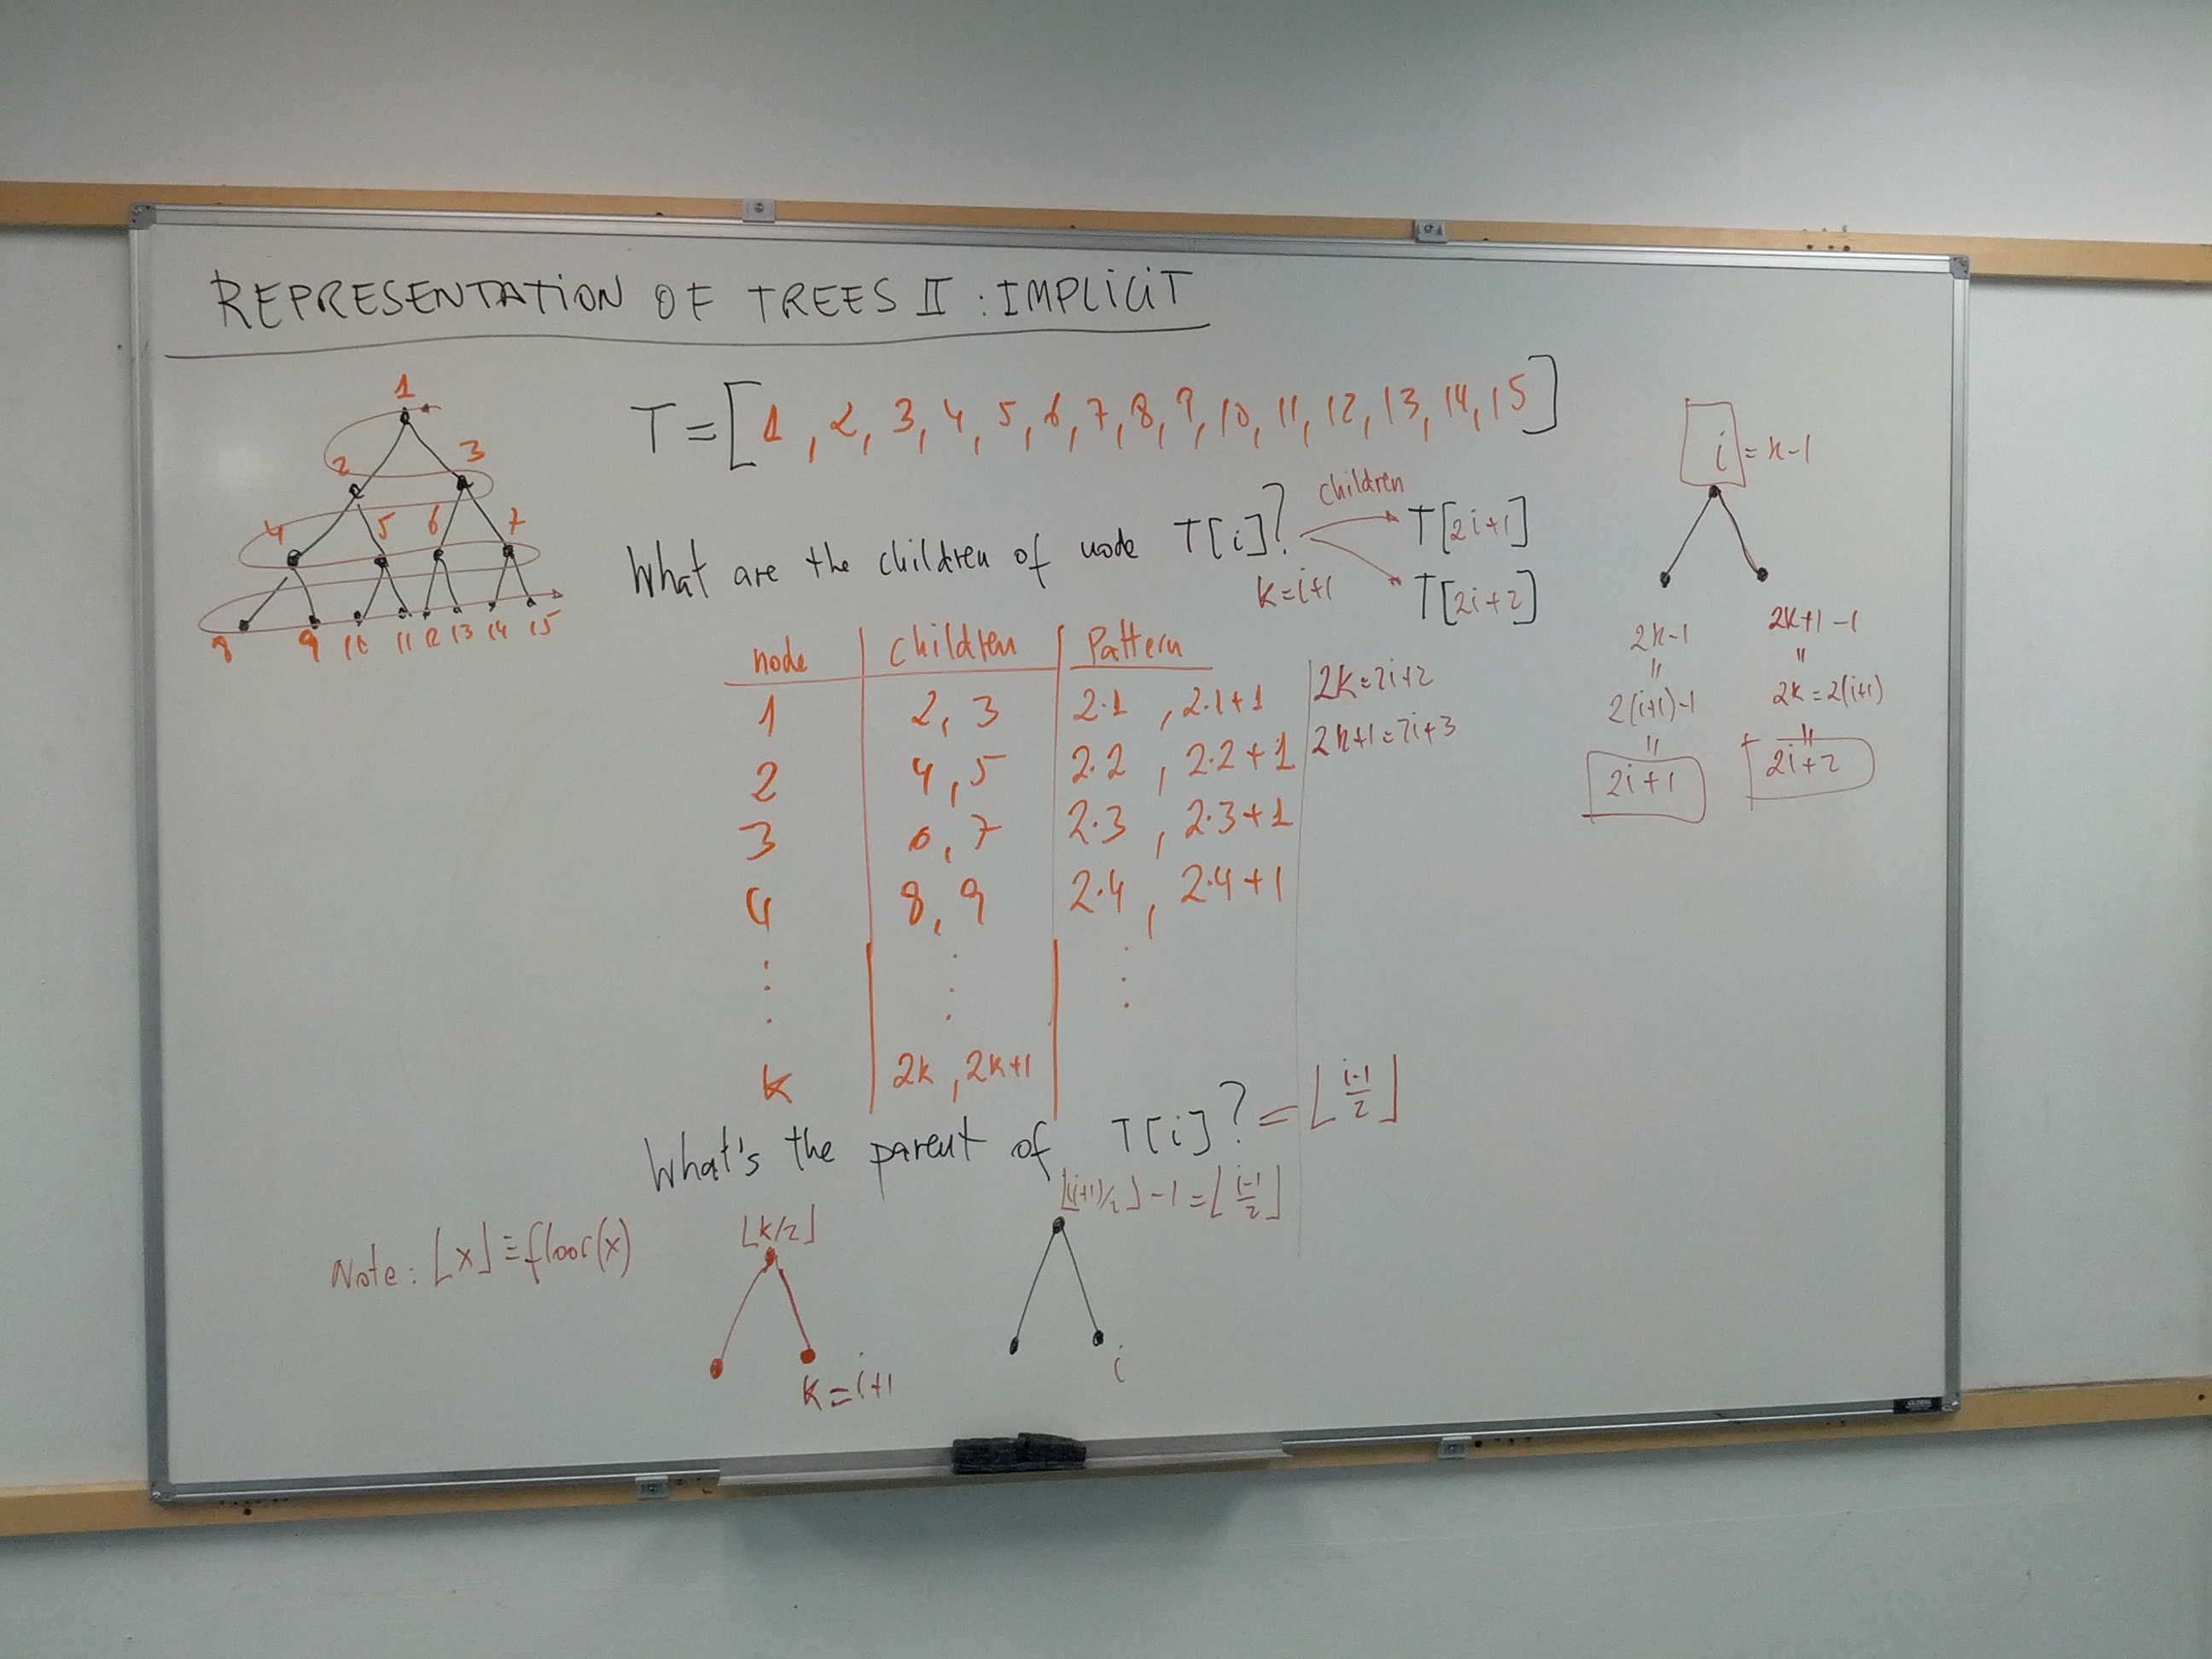 REPRESENTATION OF TREES II : IMPLICIT
1
2 3
4 5 6 7
8 9 10 11 12 13 14 15
T = [1, 2, 3, 4, 5, 6, 7, 8, 9, 10, 11, 12, 13, 14, 15]
What are the children of node T[i]?
children
T[2i+1]
T[2i+2]
k=i+1
node | children | Pattern
1 | 2, 3 | 2·1, 2·1+1
2 | 4, 5 | 2·2, 2·2+1
3 | 6, 7 | 2·3, 2·3+1
4 | 8, 9 | 2·4, 2·4+1
⋮ | ⋮ | ⋮
k | 2k, 2k+1
2k=2i+2
2k+1=2i+3
i = k-1
2k-1
=
2(i+1)-1
=
2i+1
2k+1-1
=
2k=2(i+1)
=
2i+2
What's the parent of T[i]? = ⌊(i-1)/2⌋
Note: ⌊x⌋≡floor(x)
⌊k/2⌋
k=i+1
⌊(i+1)/2⌋-1=⌊(i-1)/2⌋
i
GLOBAL